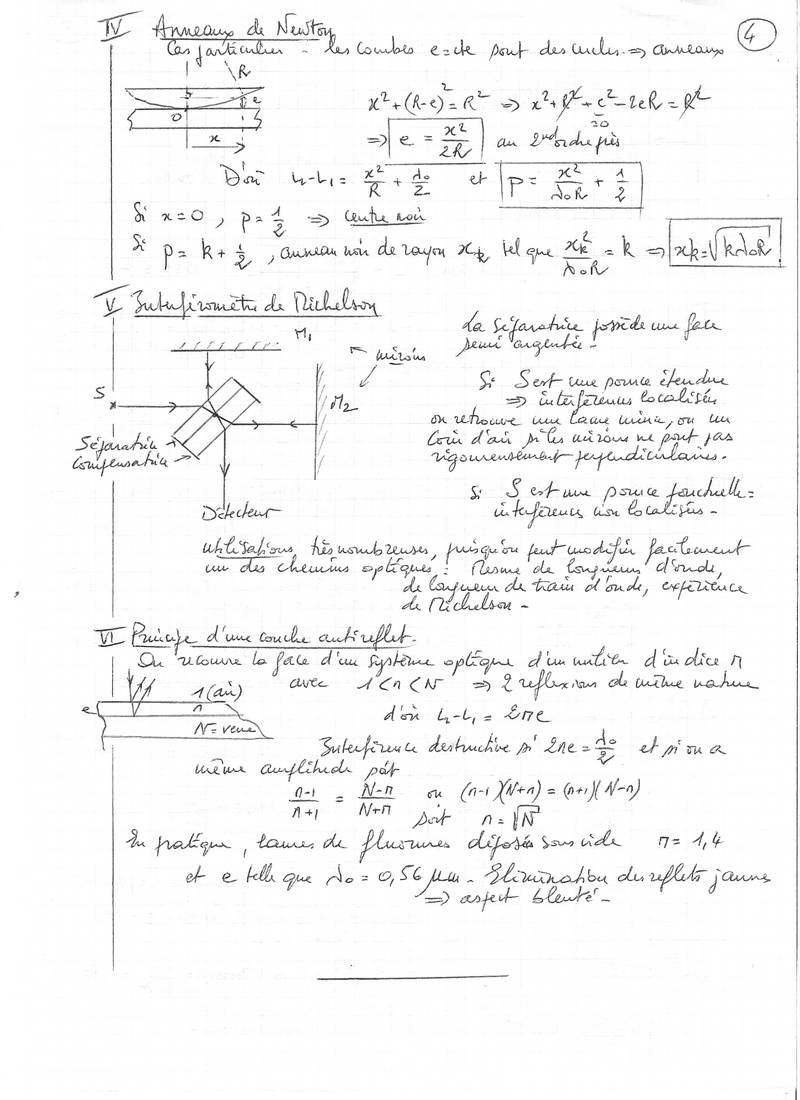 IV Anneaux de Newton
4
Cas particulier - les courbes e=cte sont des cercles ⇒ anneaux
R
e
O
x
x² + (R-e)² = R² ⇒ x² + R² + e² - 2eR = R²
≃0
⇒ e = x²/2R au 2nd ordre près
D'où L2-L1 = x²/R + λ0/2 et p = x²/λ0R + 1/2
Si x=0, p = 1/2 ⇒ centre noir
Si p = k + 1/2, anneau noir de rayon xk tel que xk²/λ0R = k ⇒ xk = √kλ0R
V Interféromètre de Michelson
M1
miroirs
S
M2
Séparatrice
Compensatrice
Détecteur
La séparatrice possède une face
semi argentée -
Si S est une source étendue
⇒ interférences localisées
on retrouve une lame mince, ou un
coin d'air si les miroirs ne sont pas
rigoureusement perpendiculaires.
Si S est une source ponctuelle =
interférences non localisées -
Utilisations, très nombreuses, puisqu'on peut modifier facilement
un des chemins optiques : Mesure de longueurs d'onde,
de longueur de train d'onde, expérience
de Michelson -
VI Principe d'une couche antireflet.
On recouvre la face d'un système optique d'un milieu d'indice n
avec 1 < n < N ⇒ 2 réflexions de même nature
1 (air)
e
n
N = verre
d'où L2-L1 = 2ne
Interférence destructive si 2ne = λ0/2 et si on a
même amplitude soit
n-1/n+1 = N-n/N+n ou (n-1)(N+n) = (n+1)(N-n)
soit n = √N
En pratique, lames de fluorures déposées sous vide n = 1,4
et e telle que λ0 = 0,56 µm - Elimination des reflets jaunes
⇒ aspect bleuté -